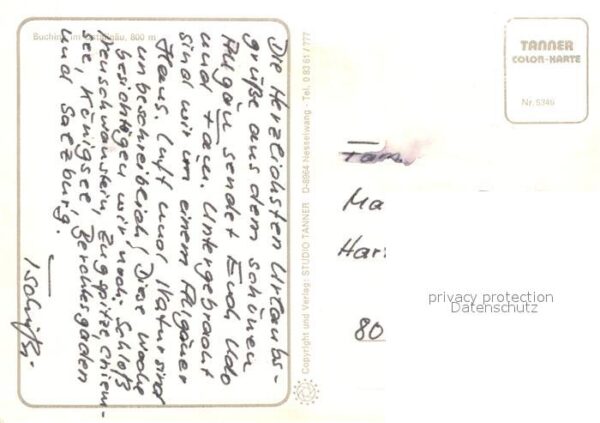 Buching im Ostallgäu, 800 m
Die Herzlichsten Urlaubs-
grüße aus dem schönen
Allgäu sendet Euch Udo
und Fam. Untergebracht
sind wir in einem Allgäuer
Haus. Luft und Natur sind
unbeschreiblich! Diese Woche
besichtigen wir noch, Schloß
Neuschwanstein, Zugspitze, Chiem-
see, Königsee, Berchtesgaden
und Salzburg.
Tschüß.
Copyright und Verlag: STUDIO TANNER D-8964 Nesselwang · Tel. 0 83 61 / 777
TANNER
COLOR-KARTE
Nr. 5346
Fam.
Ma
Har
80
privacy protection
Datenschutz